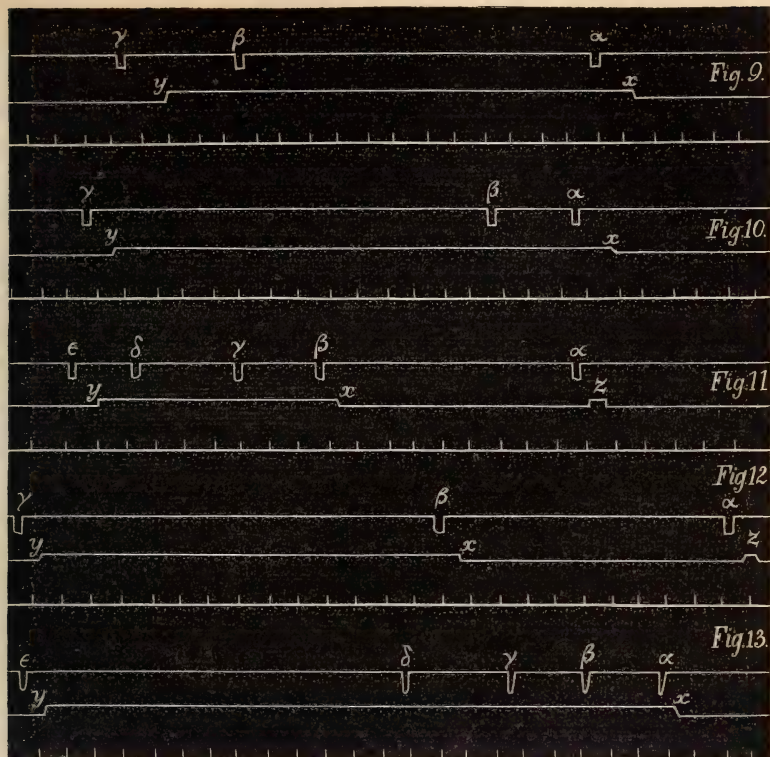 γ β α
y x Fig. 9.
γ β α
y x Fig. 10.
ε δ γ β α
y x z Fig. 11
Fig. 12
γ β α
y x z
Fig. 13.
ε δ γ β α
y x